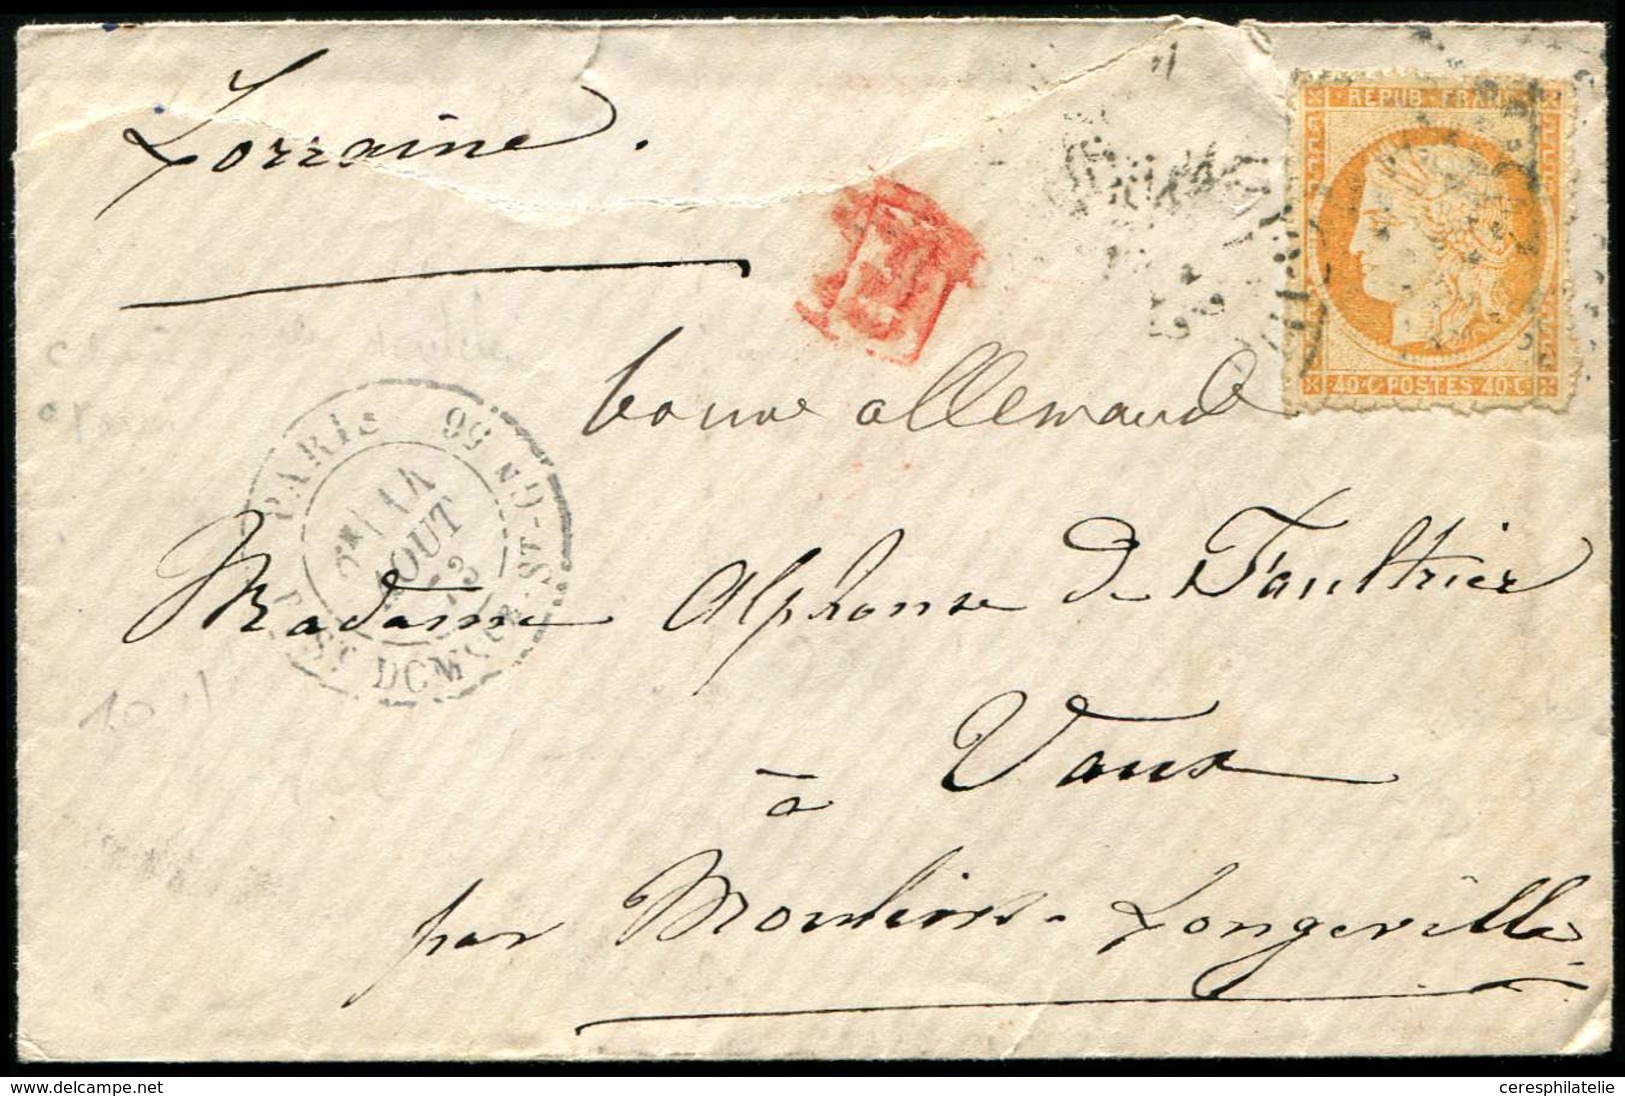 Lorraine.
REPUB FRANC
40·C POSTES 40·C
PD
bonne allemande
PARIS
6E 14
AOUT
73
R. ST DOMQUE-ST-GN 56
Madame Alphonse de Faultrier
à Vaux
par Moulins-Longeville
10
www.delcampe.net
ceresphilatelie